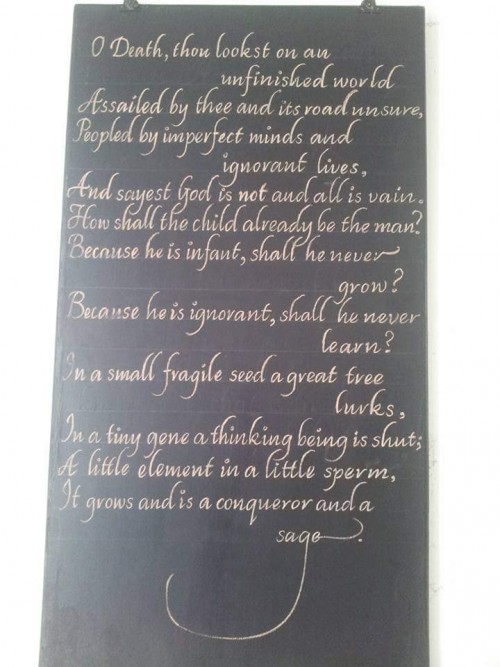 O Death, thou lookst on an
unfinished world
Assailed by thee and its road unsure,
Peopled by imperfect minds and
ignorant lives,
And sayest God is not and all is vain.
How shall the child already be the man?
Because he is infant, shall he never
grow?
Because he is ignorant, shall he never
learn?
In a small fragile seed a great tree
lurks,
In a tiny gene a thinking being is shut;
A little element in a little sperm,
It grows and is a conqueror and a
sage.